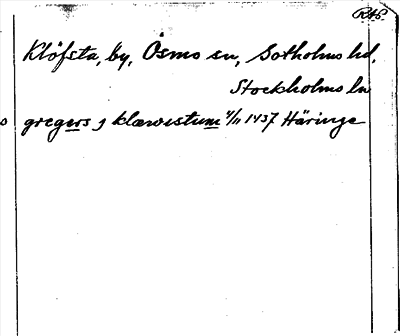 RAP.
Klöfsta, by, Ösmo sn, Sotholms hd,
Stockholms ln
gregers j klæwistum 4/11 1437 Häringe